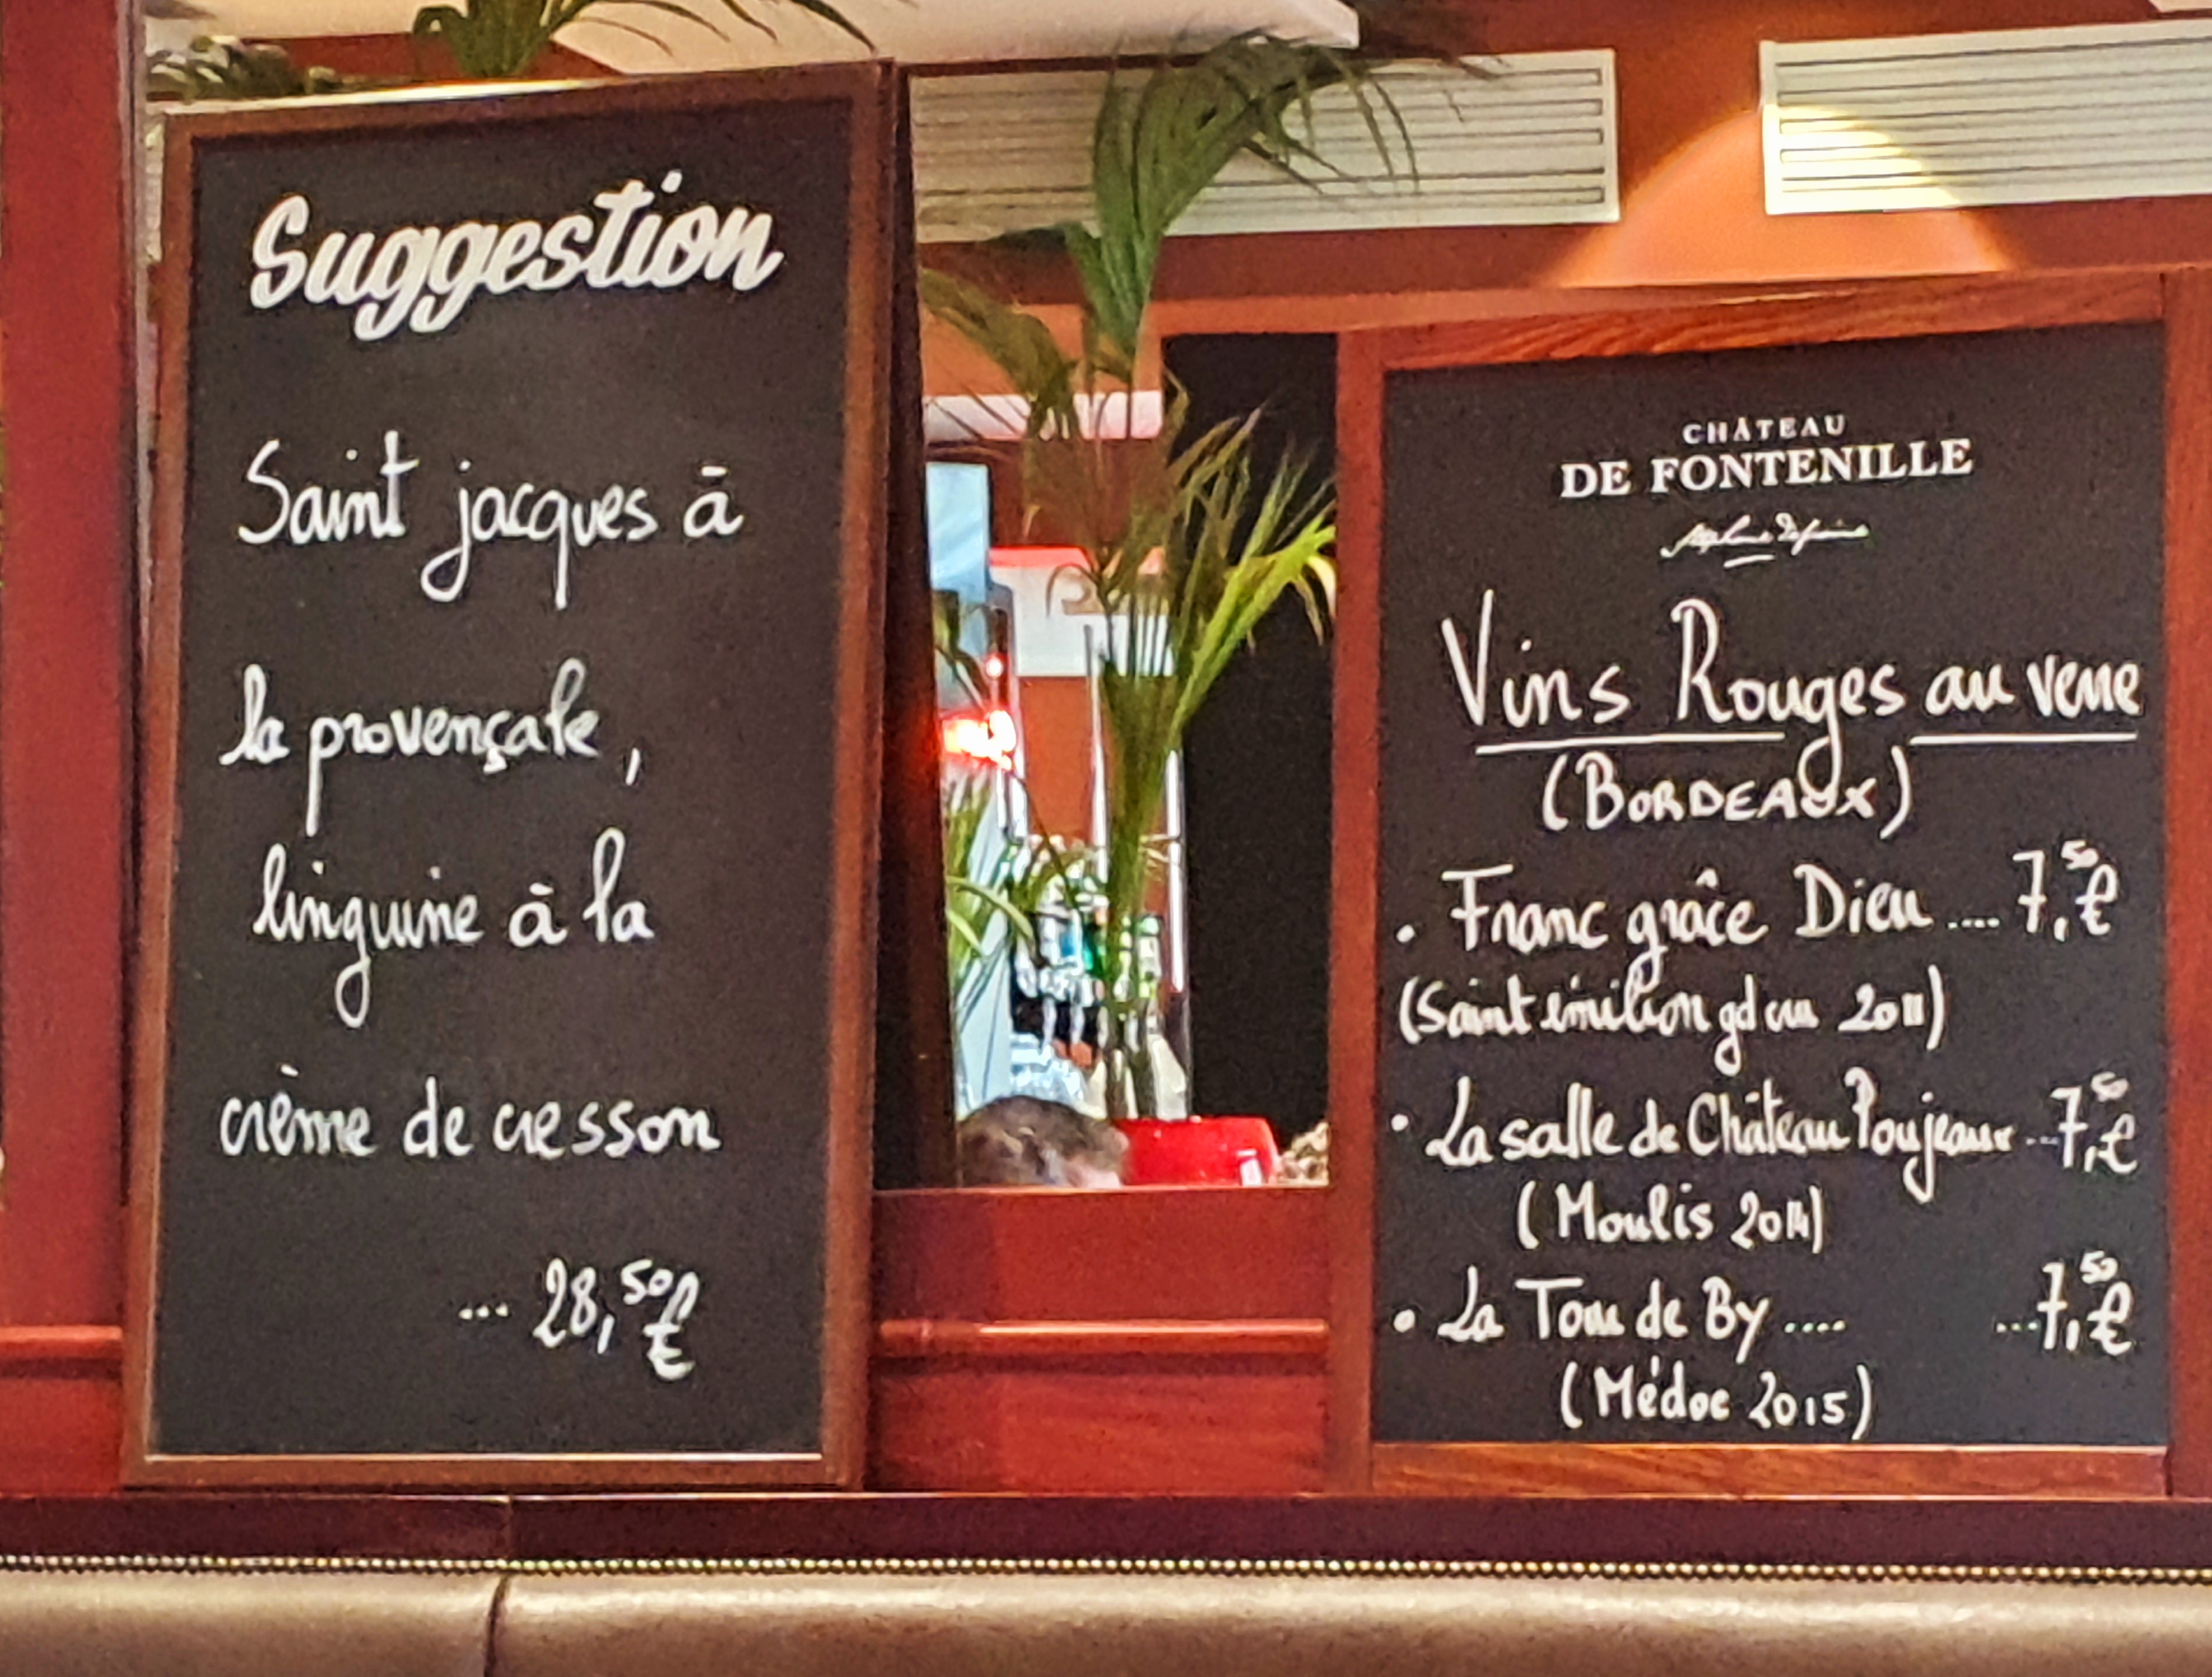 Suggestion
Saint jacques à
la provençale,
linguine à la
crème de cresson
... 28,50€
CHÂTEAU
DE FONTENILLE
Vins Rouges au verre
(BORDEAUX)
. Franc grâce Dieu .... 7,50€
(Saint émilion gd cru 2011)
. La salle de Château Poujeaux ... 7,50€
(Moulis 2014)
. La Tour de By .... ... 7,50€
(Médoc 2015)